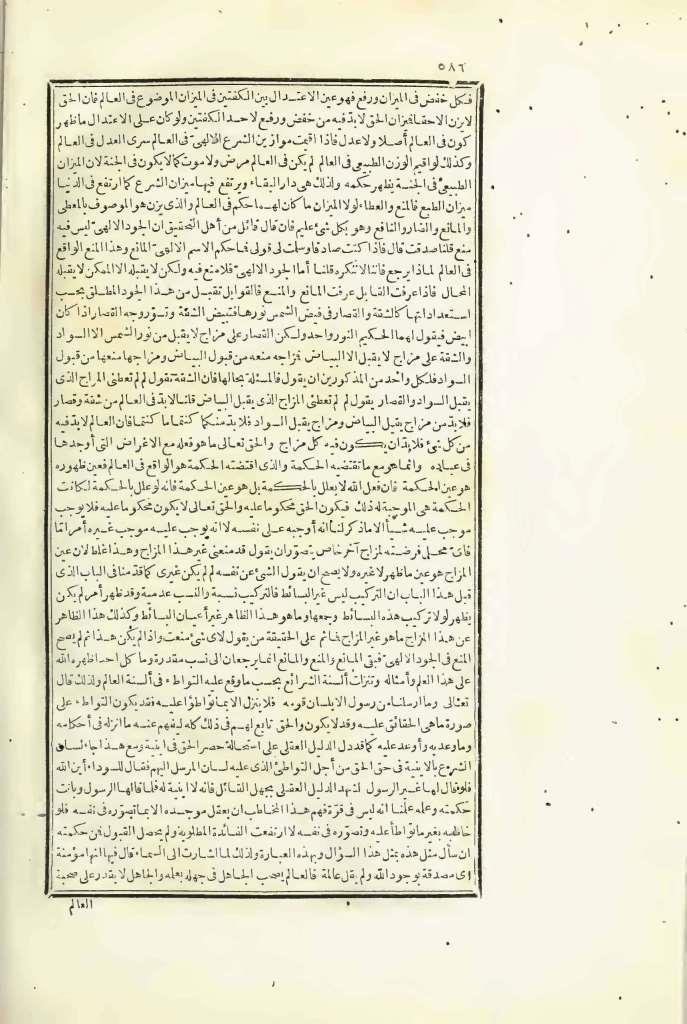 ٥٨٦
فكل خفض فى الميزان ورفع فهو عين الاعتدال بين الكفتين فى الميزان الموضوع فى العالم فان الحق
لايزن الاحقا فميزان الحق لابد فيه من خفض ورفع لاحد الكفتين ولو كان على الاعتدال ما ظهر
كون فى العالم أصلا ولا عدل فاذا اقيمت موازين الشرع الالهىّ فى العالم سرى العدل فى العالم
وكذلك لو اقيم الوزن الطبيعى فى العالم لم يكن فى العالم مرض ولا موت كما لا يكون فى الجنة لان الميزان
الطبيعىّ فى الجنة يظهر حكمه ولذلك هى دار البقاء ويرتفع فيها ميزان الشرع كما ارتفع فى الدنيا
ميزان الطبع فالمنع والعطاء لولا الميزان ما كان لهما حكم فى العالم والذى يزن هو الموصوف بالمعطى
والمانع والضار والنافع وهو بكل شئ عليم فان قال قائل من أهل التحقيق ان الجود الالهىّ ليس فيه
منع قلنا صدقت قال فاذا كنت صادقا وسلمت لى قولى فما حكم الاسم الالهىّ المانع وهذا المنع الواقع
فى العالم لماذا يرجع فاننا لا ننكره قلنا أما الجود الالهىّ فلا منع فيه ولكن لا يقبله الا الممكن لا يقبله
المحال فاذا عرفت القابل عرفت المانع والمنع فالقوابل تقبل من هذا الجود المطلق بحسب
استعداداتها كالشقة والقصار فى فيض الشمس نورها فتبيض الشقة وتسوّد وجه القصار اذا كان
ابيض فيقول لهما الحكيم النور واحد ولكن القصار على مزاج لا يقبل من نور الشمس الا السواد
والشقة على مزاج لا يقبل الا البياض فمزاجه منعه من قبول البياض ومزاجها منعها من قبول
السواد فلكل واحد من المذكورين ان يقول فالمسئلة بحالها فان الشقة تقول لم لم تعطنى المزاج الذى
يقبل السواد والقصار يقول لم لم تعطنى المزاج الذى يقبل البياض قلنا لابد فى العالم من شقة وقصار
فلابد من مزاج يقبل البياض ومزاج يقبل السواد فلابد منكما كنتما ما كنتما فان العالم لابد فيه
من كل شئ فلابد ان يكون فيه كل مزاج والحق تعالى ما هو فعله مع الاغراض التى أوجدها
فى عباده وانما هو مع ما تقتضيه الحكمة والذى اقتضته الحكمة هو الواقع فى العالم فعين ظهوره
هو عين الحكمة فان فعل الله لا يعلل بالحكمة بل هو عين الحكمة فانه لو علل بالحكمة لكانت
الحكمة هى الموجبة له ذلك فيكون الحق محكوما عليه والحق تعالى لا يكون محكوما عليه فلا يوجب
موجب عليه شيأ الا ما ذكر لنا أنه أوجبه على نفسه لا انه يوجب عليه موجب غيره أمر امّا
فاىّ محل فرضته لمزاج آخر خاص يتصوّر ان يقول قد منعنى غير هذا المزاج وهذا غلط لان عين
المزاج هو عين ما ظهر لا غيره ولا يصح ان يقول الشئ عن نفسه لم لم يكن غيرى كما قدمنا فى الباب الذى
قبل هذا الباب ان التركيب ليس غير البسائط فالتركيب نسبة والنسب عدمية وقد ظهر أمر لم يكن
يظهر لولا تركيب هذه البسائط وجمعها وما هو هذا الظاهر غير أعيان البسائط وكذلك هذا الظاهر
عن هذا المزاج ما هو غير المزاج فما ثم على الحقيقة من يقول لاى شئ منعت واذا لم يكن هذا ثم لم يصح
المنع فى الجود الالهىّ فبقى المانع والمنع والمانع انما يرجعان الى نسب مقدرة وما كل احد اظهره الله
على هذا العلم وأمثاله وتنزلت ألسنة الشرائع بحسب ما وقع عليه التواطء فى ألسنة العالم ولذلك قال
تعالى وما ارسلنا من رسول الا بلسان قومه فلا ينزل الا بما تواطؤا عليه فقد يكون التواطء على
صورة ما هى الحقائق عليه وقد لا يكون والحق تابع لهم فى ذلك كله ليفهم عنه ما انزله فى أحكامه
وما وعد به وأوعد عليه كما قد دل الدليل العقلى على استحالة حصر الحق فى اينية ومع هذا جاء لسان
الشرع بالاينية فى حق الحق من أجل التواطئ الذى عليه لسان المرسل اليهم فقال للسوداء أين الله
فلو قال لها غير الرسول لشهد الدليل العقلى بجهل القائل فانه لا اينية له فلما قالها الرسول وبانت
حكمته وعلمه علمنا انه ليس فى قوّة فهم هذا المخاطب ان يعقل موجده الا بما تصوّره فى نفسه فلو
خاطبه بغير ما تواطأ عليه وتصوّره فى نفسه لارتفعت الفائدة المطلوبة ولم يحصل القبول فمن حكمته
ان سأل مثل هذه بمثل هذا السؤال وبهذه العبارة ولذلك لما اشارت الى السماء قال فيها انها مؤمنة
اى مصدقة بوجود الله ولم يقل عالمة فالعالم يصحب الجاهل فى جهله بعلمه والجاهل لا يقدر على صحبة
العالم